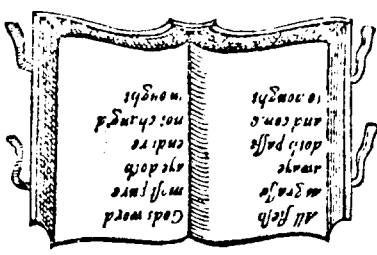 All fleſh
as graſſe
awaye
doth paſſe
and com's
to nought
Gods word
moſt pure
aye doth
endure
not chang'd
in ought